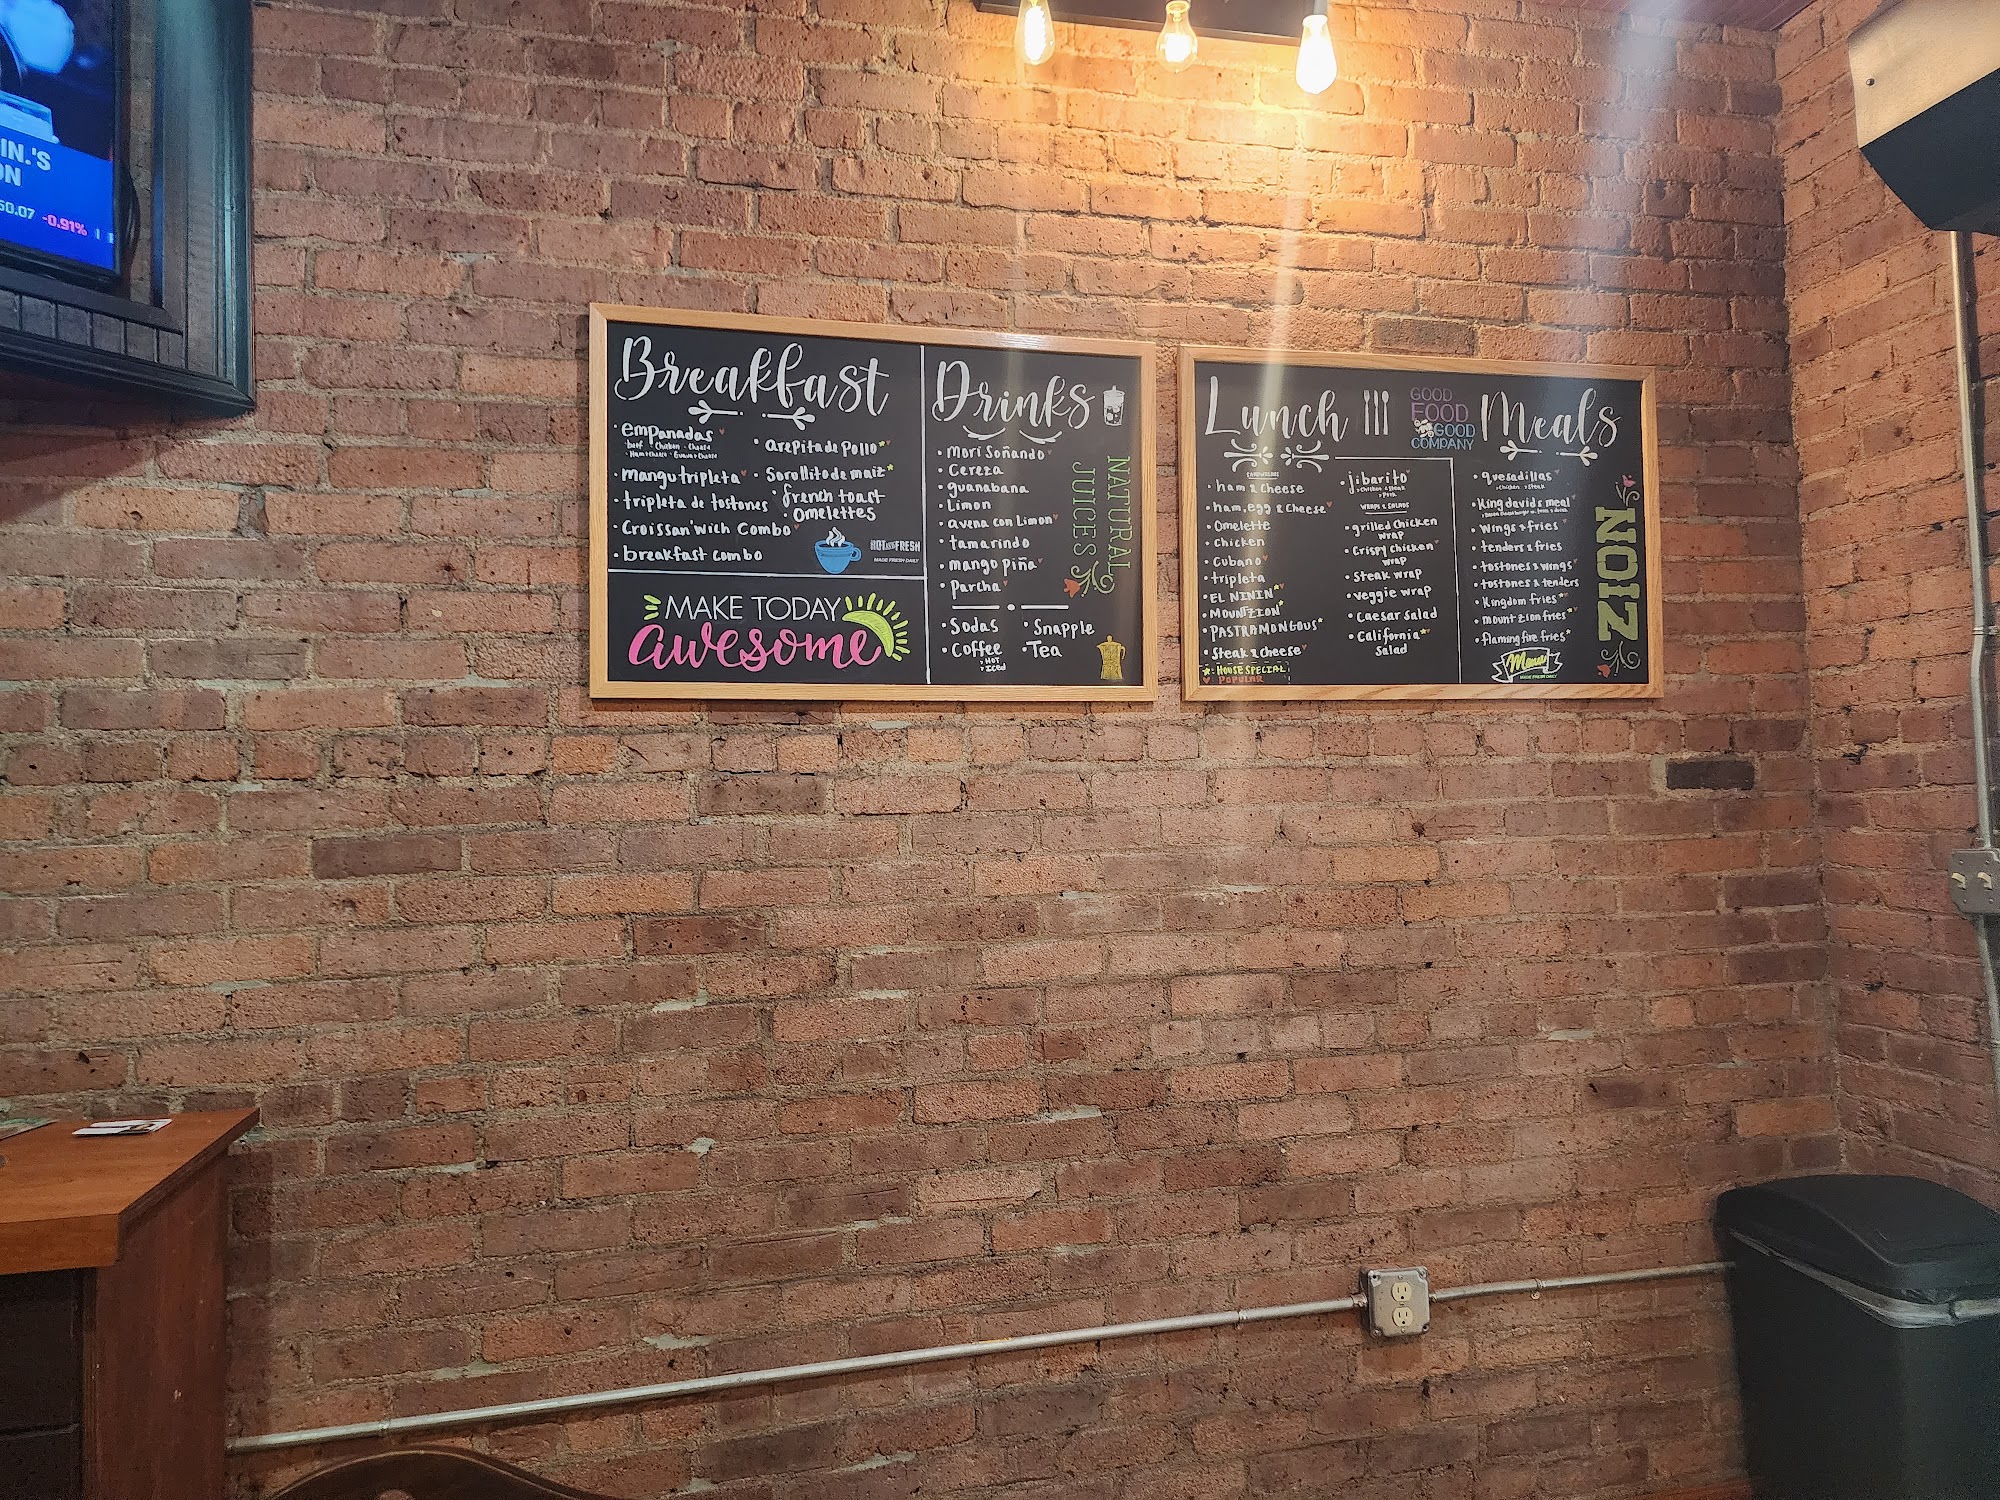 IN.'S
ON
50.07 -0.91%
Breakfast
empanadas
beef · Chicken · Cheese
Ham & Cheese · Guava & Cheese
mangu tripleta
tripleta de tostones
Croissan'wich Combo
breakfast combo
arepita de Pollo
Sorollito de maiz
french toast
Omelettes
HOT FRESH
MADE FRESH DAILY
MAKE TODAY
awesome
Drinks
Mori Soñando
Cereza
guanabana
Limon
avena con Limon
tamarindo
mango piña
Parcha
NATURAL
JUICES
Sodas
Coffee
HOT
Iced
Snapple
Tea
Lunch
GOOD
FOOD
GOOD
COMPANY
SANDWICHES
ham & Cheese
ham, egg & Cheese
Omelette
Chicken
Cubano
tripleta
EL NININ
MOUNT ZION
PASTRAMONGOUS
Steak & Cheese
: HOUSE SPECIAL
: POPULAR
jibarito
Chicken · Steak
Pork
WRAPS & SALADS
grilled Chicken
wrap
Crispy Chicken
wrap
Steak wrap
veggie wrap
Caesar Salad
California
Salad
Meals
quesadillas
Chicken · Steak
King davids meal
Wings & fries
tenders & fries
tostones & wings
tostones & tenders
Kingdom fries
mount zion fries
flaming fire fries
Menu
MADE FRESH DAILY
ZION